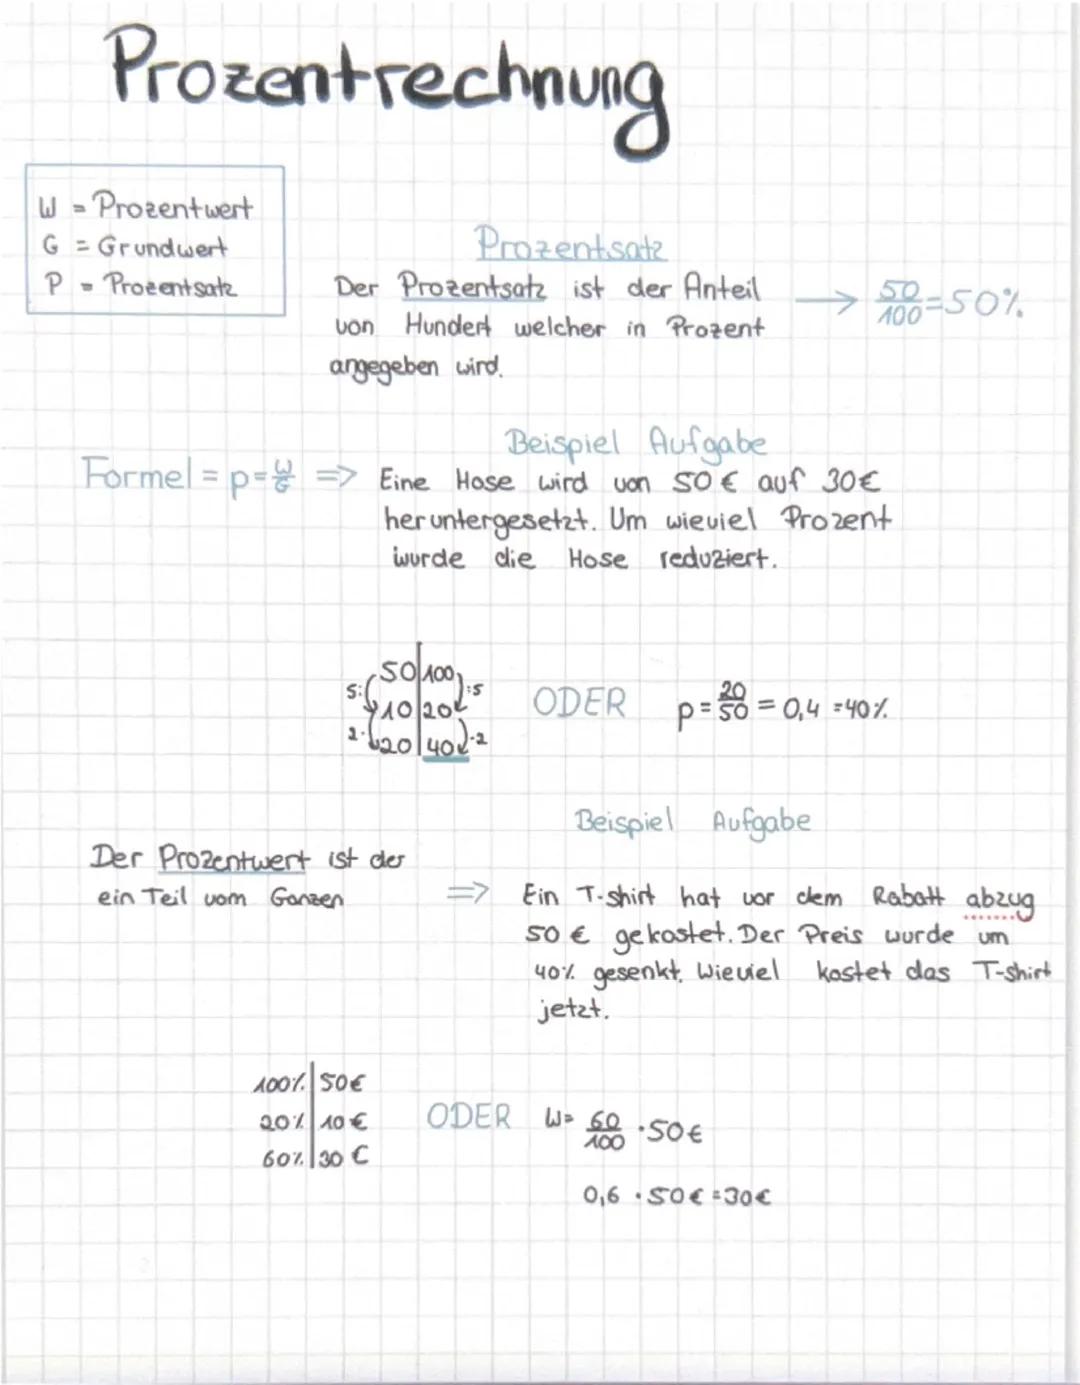 Prozentrechnung
W = Prozentwert
G = Grundwert
P = Prozentsatz
Prozentsatz
Der Prozentsatz ist der Anteil
von Hundert welcher in Prozent
angegeben wird.
→ 50/100 = 50%
Beispiel Aufgabe
Formel = p = W/G => Eine Hose wird von 50 € auf 30€
heruntergesetzt. Um wieviel Prozent
wurde die Hose reduziert.
50 | 100
5: :5
10 | 20
2· ·2
20 | 40
ODER p = 20/50 = 0,4 = 40%
Beispiel Aufgabe
Der Prozentwert ist der
ein Teil vom Ganzen
=> Ein T-shirt hat vor dem Rabatt abzug
50 € gekostet. Der Preis wurde um
40% gesenkt. Wieviel kostet das T-shirt
jetzt.
100% | 50€
20% | 10€
60% | 30 €
ODER W= 60/100 · 50€
0,6 · 50€ = 30€